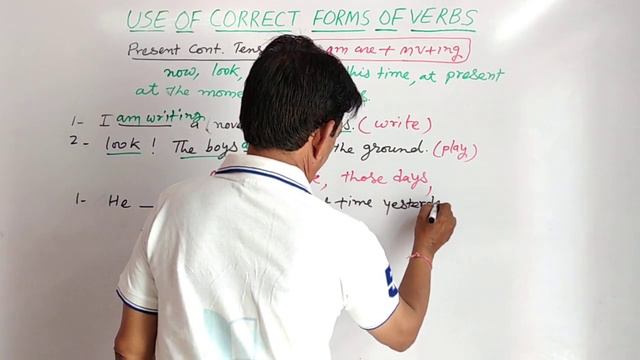 USE OF CORRECT FORMS OF VERBS
Present Cont. am are + MV + ing
now, look, this time, at present
at the
1- I am writing a (write)
2- look! The boys the ground. (play)
those days,
1- He _ time
5